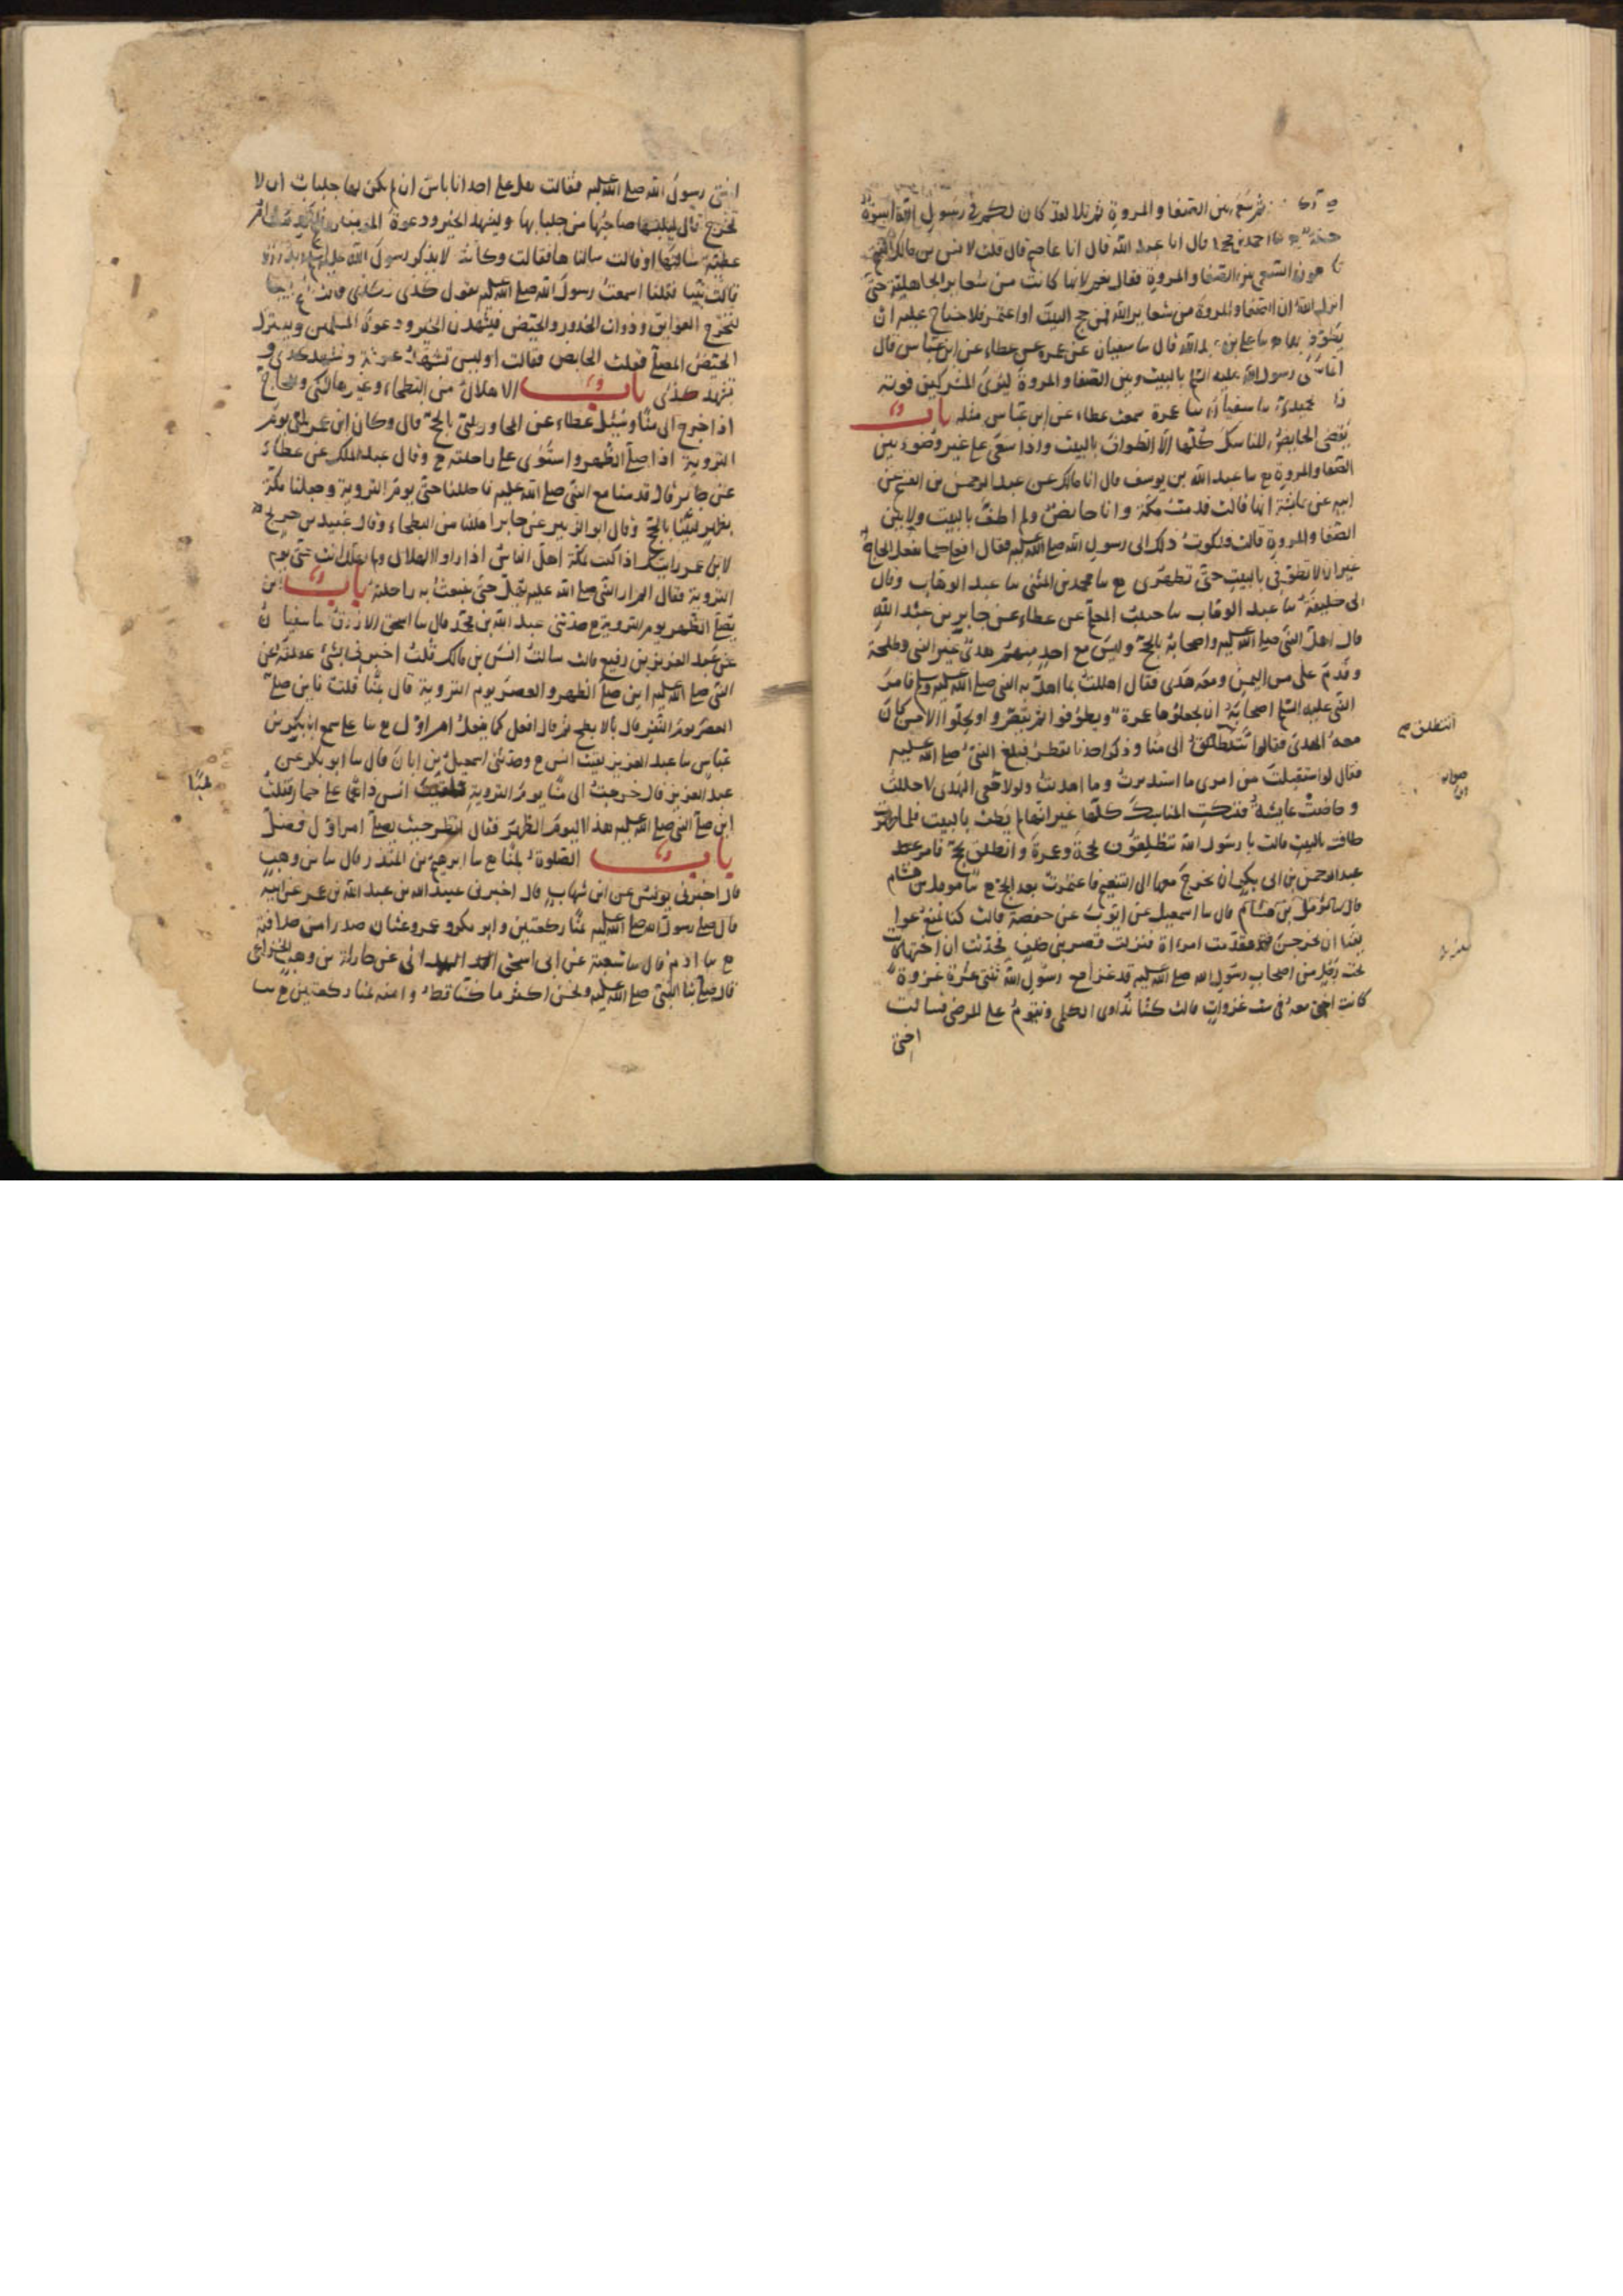 ثم سعى بين الصفا والمروة ثم تلا لقد كان لكم في رسول الله اسوة
حسنة ع نا احمد بن محمد قال انا عبد الله قال انا عاصم قال قلت لانس بن مالك اكنتم
تكرهون السعي بين الصفا والمروة فقال نعم لانها كانت من شعاير الجاهلية حتى
انزل الله ان الصفا والمروة من شعاير الله فمن حج البيت او اعتمر فلا جناح عليه ان
يطوف بهما ع نا علي بن عبد الله قال نا سفيان عن عمرو عن عطاء عن ابن عباس قال
انما سعى رسول الله عليه السلم بالبيت وبين الصفا والمروة ليري المشركين قوته
زاد الحميدي نا سفيان نا عمرو سمعت عطاء عن ابن عباس مثله باب
يقضي الحايض المناسك كلها الا الطواف بالبيت واذا سعى على غير وضوء بين
الصفا والمروة ع نا عبد الله بن يوسف قال انا مالك عن عبد الرحمن بن القسم عن
ابيه عن عايشة انها قالت قدمت مكة وانا حايض ولم اطف بالبيت ولا بين
الصفا والمروة قالت فشكوت ذلك الى رسول الله صلى الله عليه فقال افعلي كما يفعل الحاج
غير ان لا تطوفي بالبيت حتى تطهري ع نا محمد بن المثنى نا عبد الوهاب وقال
لي خليفة نا عبد الوهاب نا حبيب المعلم عن عطاء عن جابر بن عبد الله
قال اهل النبي صلى الله عليه واصحابه بالحج وليس مع احد منهم هدي غير النبي وطلحة
وقدم علي من اليمن ومعه هدي فقال اهللت بما اهل به النبي صلى الله عليه وسلم فامر
النبي عليه السلم اصحابه ان يجعلوها عمرة ويطوفوا ثم يقصروا ويحلوا الا من كان
معه الهدي فقالوا ننطلق الى منا وذكر احدنا يقطر فبلغ النبي صلى الله عليه
فقال لو استقبلت من امري ما استدبرت وما اهديت ولولا معي الهدي لاحللت
وحاضت عايشة فنسكت المناسك كلها غير انها لم تطف بالبيت فلما طهرت
طافت بالبيت قالت يا رسول الله تنطلقون بحجة وعمرة وانطلق بحج فامر
عبد الرحمن بن ابي بكر ان يخرج معها الى التنعيم فاعتمرت بعد الحج ع نا مومل بن هشام
قال نا مؤمل بن هشام قال نا اسمعيل عن ايوب عن حفصة قالت كنا نمنع عواتقنا
ان يخرجن فقدمت امراة فنزلت قصر بني خلف فحدثت ان اختها كانت
تحت رجل من اصحاب رسول الله صلى الله عليه قد غزا مع رسول الله ثنتي عشرة غزوة
كانت اختي معه في ست غزوات قالت كنا نداوي الكلمى ونقوم على المرضى فسالت
اختي
اننطلق
اختي رسول الله صلى الله عليه فقالت هل على احدانا باس ان لم يكن لها جلباب ان لا
تخرج قال لتلبسها صاحبتها من جلبابها ولتشهد الخير ودعوة المومنين فلما قدمت ام
عطية سالتها او قالت سالناها فقالت وكانت لا تذكر رسول الله صلى الله عليه
قالت بيبا فقلنا اسمعت رسول الله صلى الله عليه يقول كذى وكذى قالت نعم بيبا
لتخرج العواتق وذوات الخدور والحيض فيشهدن الخير ودعوة المسلمين ويعتزل
الحيض المصلى فقلت الحايض فقالت اوليس تشهد عرفة وتشهد كذى و
تشهد كذى باب الاهلال من البطحاء وغيرها للمكي والحاج
اذا خرج الى منا وسئل عطاء عن المجاور يلبي بالحج قال وكان ابن عمر يلبي يوم
التروية اذا صلى الظهر واستوى على راحلته ع وقال عبد الملك عن عطاء
عن جابر قال قدمنا مع النبي صلى الله عليه فاحللنا حتى يوم التروية وجعلنا مكة
بظهر لبينا بالحج وقال ابو الزبير عن جابر اهللنا من البطحاء وقال عبيد بن جريج
لابن عمر رايتك اذا كنت بمكة اهل الناس اذا راوا الهلال ولم تهل انت حتى يوم
التروية فقال لم ار النبي صلى الله عليه يهل حتى تنبعث به راحلته باب اين
يصلى الظهر يوم التروية ع حدثني عبد الله بن محمد قال نا اسحق الازرق نا سفيان
عن عبد العزيز بن رفيع قالت سالت انس بن مالك قلت اخبرني بشيء عقلته عن
النبي صلى الله عليه اين صلى الظهر والعصر يوم التروية قال بمنا قلت فاين صلى
العصر يوم النفر قال بالابطح ثم قال افعل كما يفعل امراؤك ع نا علي سمع ابا بكر بن
عياش نا عبد العزيز لقيت انس ع وحدثني اسمعيل بن ابان قال نا ابو بكر عن
عبد العزيز قال خرجت الى منا يوم التروية فلقيت انس ذاهبا على حمار فقلت
اين صلى النبي صلى الله عليه هذا اليوم الظهر فقال انظر حيث يصلي امراؤك فصل
باب الصلوة بمنا ع نا ابرهيم بن المنذر قال نا بن وهب
قال اخبرني يونس عن ابن شهاب قال اخبرني عبيد الله بن عبد الله بن عمر عن ابيه
قال صلى رسول الله صلى الله عليه بمنا ركعتين وابو بكر وعمر وعثمان صدرا من خلافته
ع نا ادم قال نا شعبة عن ابي اسحق الهمداني عن حارثة بن وهب الخزاعي
قال صلى بنا النبي صلى الله عليه ونحن اكثر ما كنا قط وامنه بمنا ركعتين ع نا